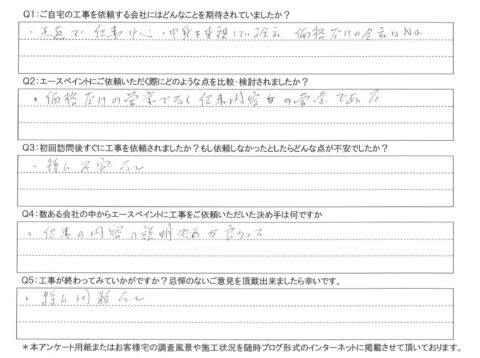 Q1:ご自宅の工事を依頼する会社にはどんなことを期待されていましたか？
・正直で仕事中心・中身を重視している会社 価格だけの会社はNo
Q2:エースペイントにご依頼いただく際にどのような点を比較・検討されましたか？
・価格だけの営業でなく仕事内容の営業である
Q3:初回訪問後すぐに工事を依頼されましたか？もし依頼しなかったとしたらどんな点が不安でしたか？
・特に不安なし
Q4:数ある会社の中からエースペイントに工事をご依頼いただいた決め手は何ですか
・仕事の内容の説明が良かった
Q5:工事が終わってみていかがですか？忌憚のないご意見を頂戴出来ましたら幸いです。
・特に問題なし
＊本アンケート用紙またはお客様宅の調査風景や施工状況を随時ブログ形式のインターネットに掲載させて頂いております。